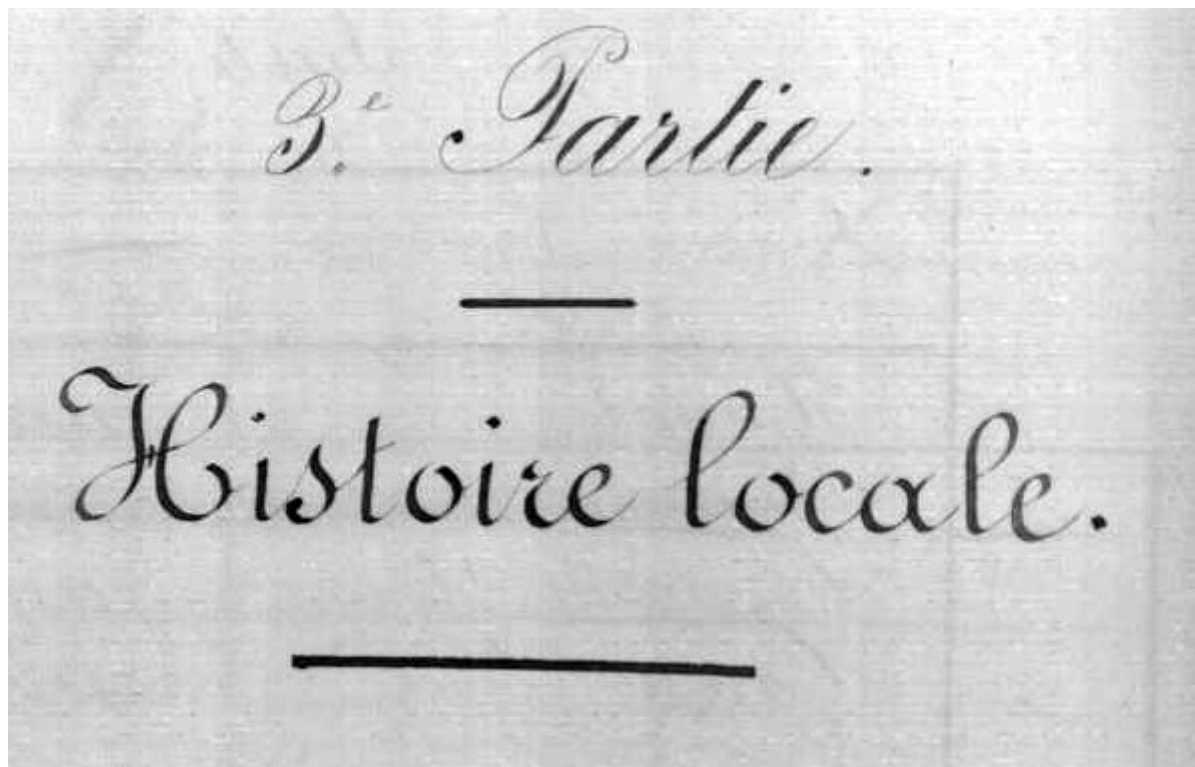 3.e Partie.
Histoire locale.